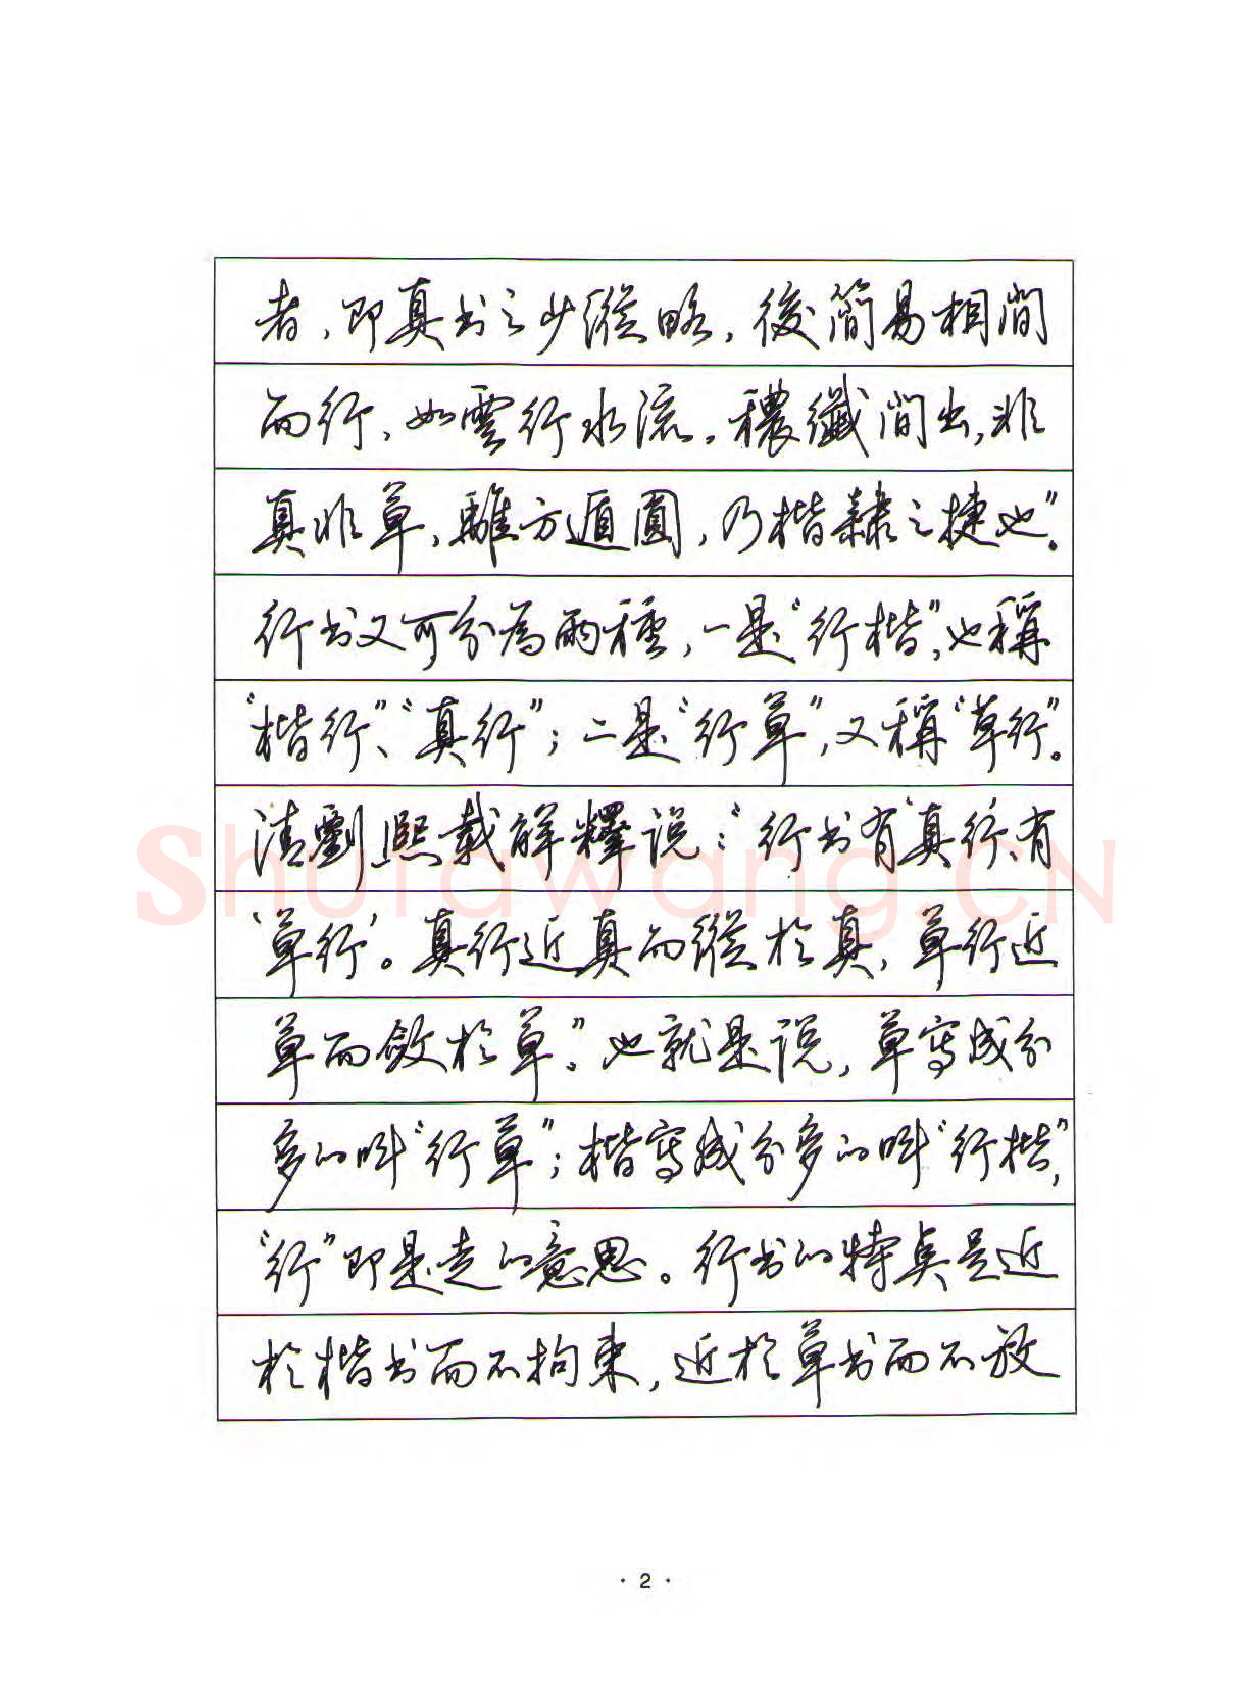 者，即真书之少縱略，後簡易相間
而行，如雲行水流，穠纖間出，非
真非草，離方遁圓，乃楷隸之捷也”。
行书又可分為兩種，一是“行楷”，也稱
“楷行”、“真行”；二是“行草”，又稱“草行”。
清劉熙載解釋说：“行书有‘真行’、有
‘草行’。真行近真而縱於真，草行近
草而斂於草。”也就是说，草寫成分
多的叫“行草”；楷寫成分多的叫“行楷”，
“行”即是走的意思。行书的特点是近
於楷书而不拘束，近於草书而不放
shufawang.CN
· 2 ·